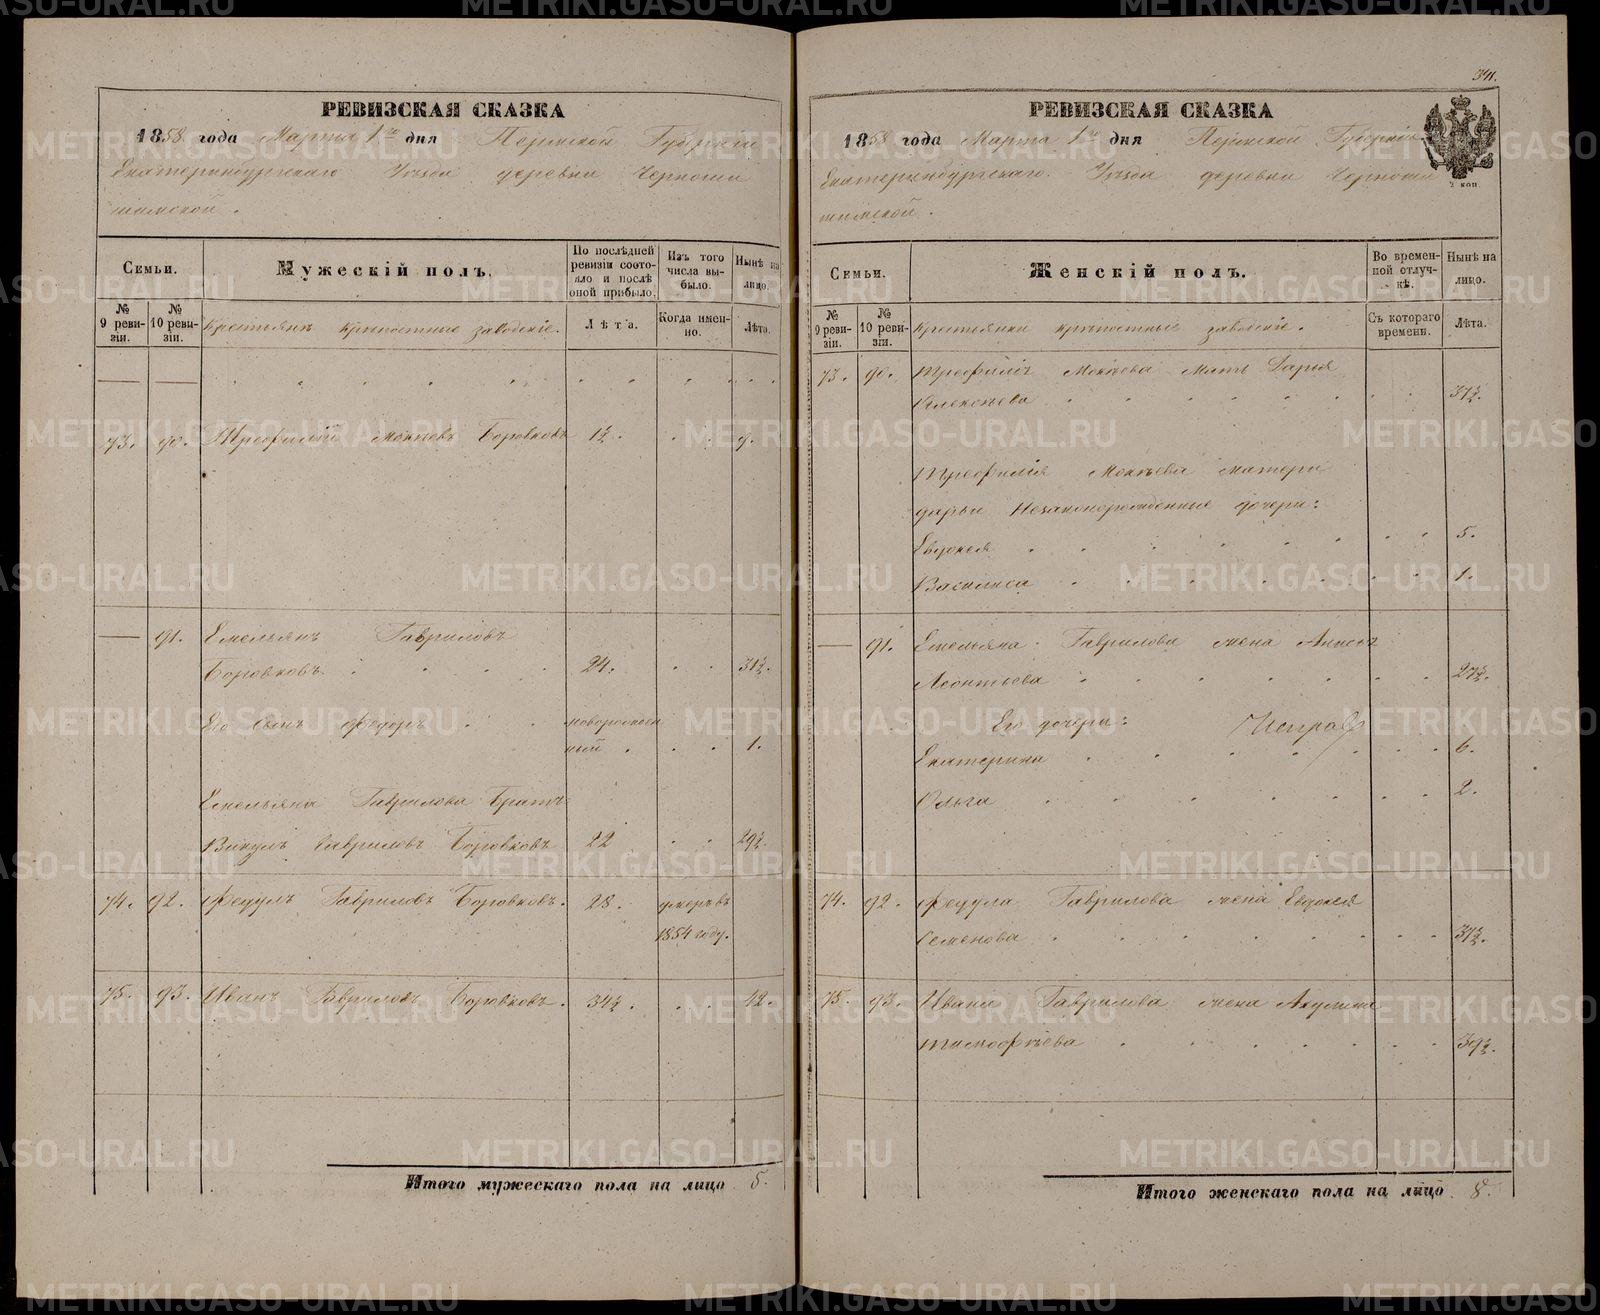 РЕВИЗСКАЯ СКАЗКА
1858 года Марта 1го дня Пермской Губернiи
Екатеринбургскаго Уѣзда деревни Черноши
шимской.
Семьи.
Мужескiй полъ.
По послѣдней ревизiи состо-яло и послѣ оной прибыло.
Изъ того числа вы-было.
Нынѣ на лицо.
№ 9 реви-зiи.
№ 10 реви-зiи.
Крестьянъ крѣпостные заводскiе.
Лѣта.
Когда имен-но.
Лѣта.
73. 90. Трефилiй Мокѣевъ Боровковъ 1½. 9.
91. Емельянъ Гавриловъ
Боровковъ. 24. 31½.
Его сынъ Федоръ новорожден
ный 1.
Емельяна Гаврилова Братъ
Викулъ Гавриловъ Боровковъ 22 29½.
74. 92. Федулъ Гавриловъ Боровковъ. 28. умеръ въ
1854 году.
75. 93. Иванъ Гавриловъ Боровковъ. 34½. 42.
Итого мужескаго пола на лицо 5.
341.
РЕВИЗСКАЯ СКАЗКА
1858 года Марта 1го дня Пермской Губернiи
Екатеринбургскаго Уѣзда деревни Черноши
шимской.
2 коп.
Семьи.
Женскiй полъ.
Во времен-ной отлуч-кѣ.
Нынѣ на лицо.
№ 9 реви-зiи.
№ 10 реви-зiи.
Крестьянки крѣпостные заводскiе.
Съ котораго времени.
Лѣта.
73. 90. Трефилiя Мокѣева Мать Дарья
Алексѣева 37½.
Трефилiя Мокѣева матери
Дарьи Незаконорожденные дочери:
Евдокея 5.
Василиса 1.
91. Емельяна Гаврилова жена Анисья
Леонтьева 27½.
Его дочери:
Екатерина 6.
Ольга 2.
74. 92. Федула Гаврилова жена Евдокея
Семенова 37½.
75. 93. Ивана Гаврилова жена Акулина
Тимофѣева 39½.
Итого женскаго пола на лицо 8.
METRIKI.GASO-URAL.RU